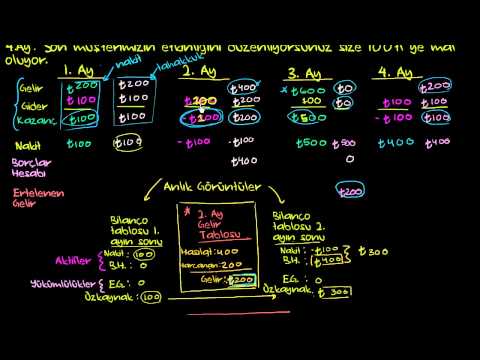 4.Ay: Son müşterimizin etkinliğini düzenliyorsunuz size 100 tl ye mal
oluyor.
nakit
tahakkuk
1. Ay 2. Ay 3. Ay 4. Ay
Gelir ₺200 ₺200 ₺400 * ₺600 ₺0 ₺200
Gider ₺100 ₺100 200 ₺200 100 ₺0 ₺100 ₺100
Kazanç ₺100 ₺100 ₺200 ₺500 ₺0 -₺100 ₺100
Nakit ₺100 ₺100 -₺100 -₺100 ₺500 ₺500 ₺400 ₺400
Borçlar ₺400 0
Hesabı
Ertelenen ₺200
Gelir
Anlık Görüntüler
Bilanço
tablosu 1.
ayın sonu
Aktifler
Nakit: 100
B.H.: 0
Yükümlülükler
E.G: 0
Özkaynak: 100
* 2. Ay
Gelir
Tablosu
Hasılat: 400
Harcanan: 200
Gelir: ₺200
Bilanço
tablosu 2.
ayın sonu
Nakit: -₺100
B.H.: ₺400
₺300
E.G: 0
Özkaynak: ₺300